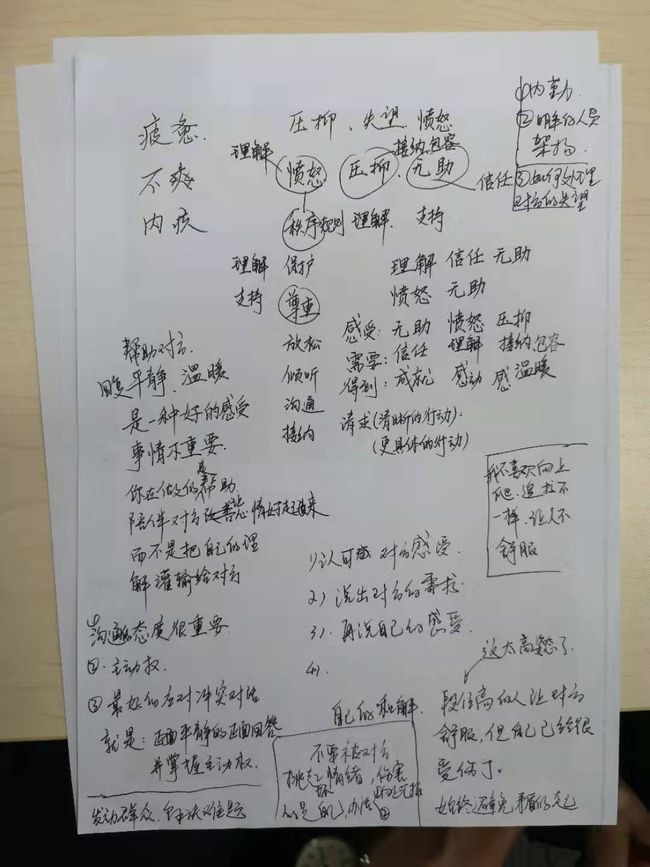 疲惫
不爽
内疚
压抑、失望、愤怒
理解
接纳包容
愤怒 压抑、无助
信任
秩序规则 理解 支持
①内勤
②明年的人员
架构
③如何处理
对方的失望
理解 保护
支持 尊重
放松
倾听
沟通
接纳
理解 信任 无助
愤怒 无助
感受：无助 愤怒 压抑
需要：信任 理解 接纳包容
得到：成就 感动 感 温暖
请求(清晰的行动)
(更具体的行动)
帮助对方
回复平静、温暖
是一种好的感受
事情不重要
你在做的是帮助
陪伴对方改善 情好起来
而不是把自己的理
解灌输给对方
我不喜欢向上
爬，追求不
一样，让人不
舒服
1)认可 对方感受
2)说出对方的需求
3)再说自己的感受
4)
沟通的态度很重要
②主动权
③最好的应对冲突对话
就是：正面平静的正面回答
并掌握主动权
发动群众
这太高态了
段位高的人让对方
舒服，但自己已经很
受伤了
始终避免矛盾的
自己的和解
不要被对方
挑起情绪，伤害
的是自己，办法